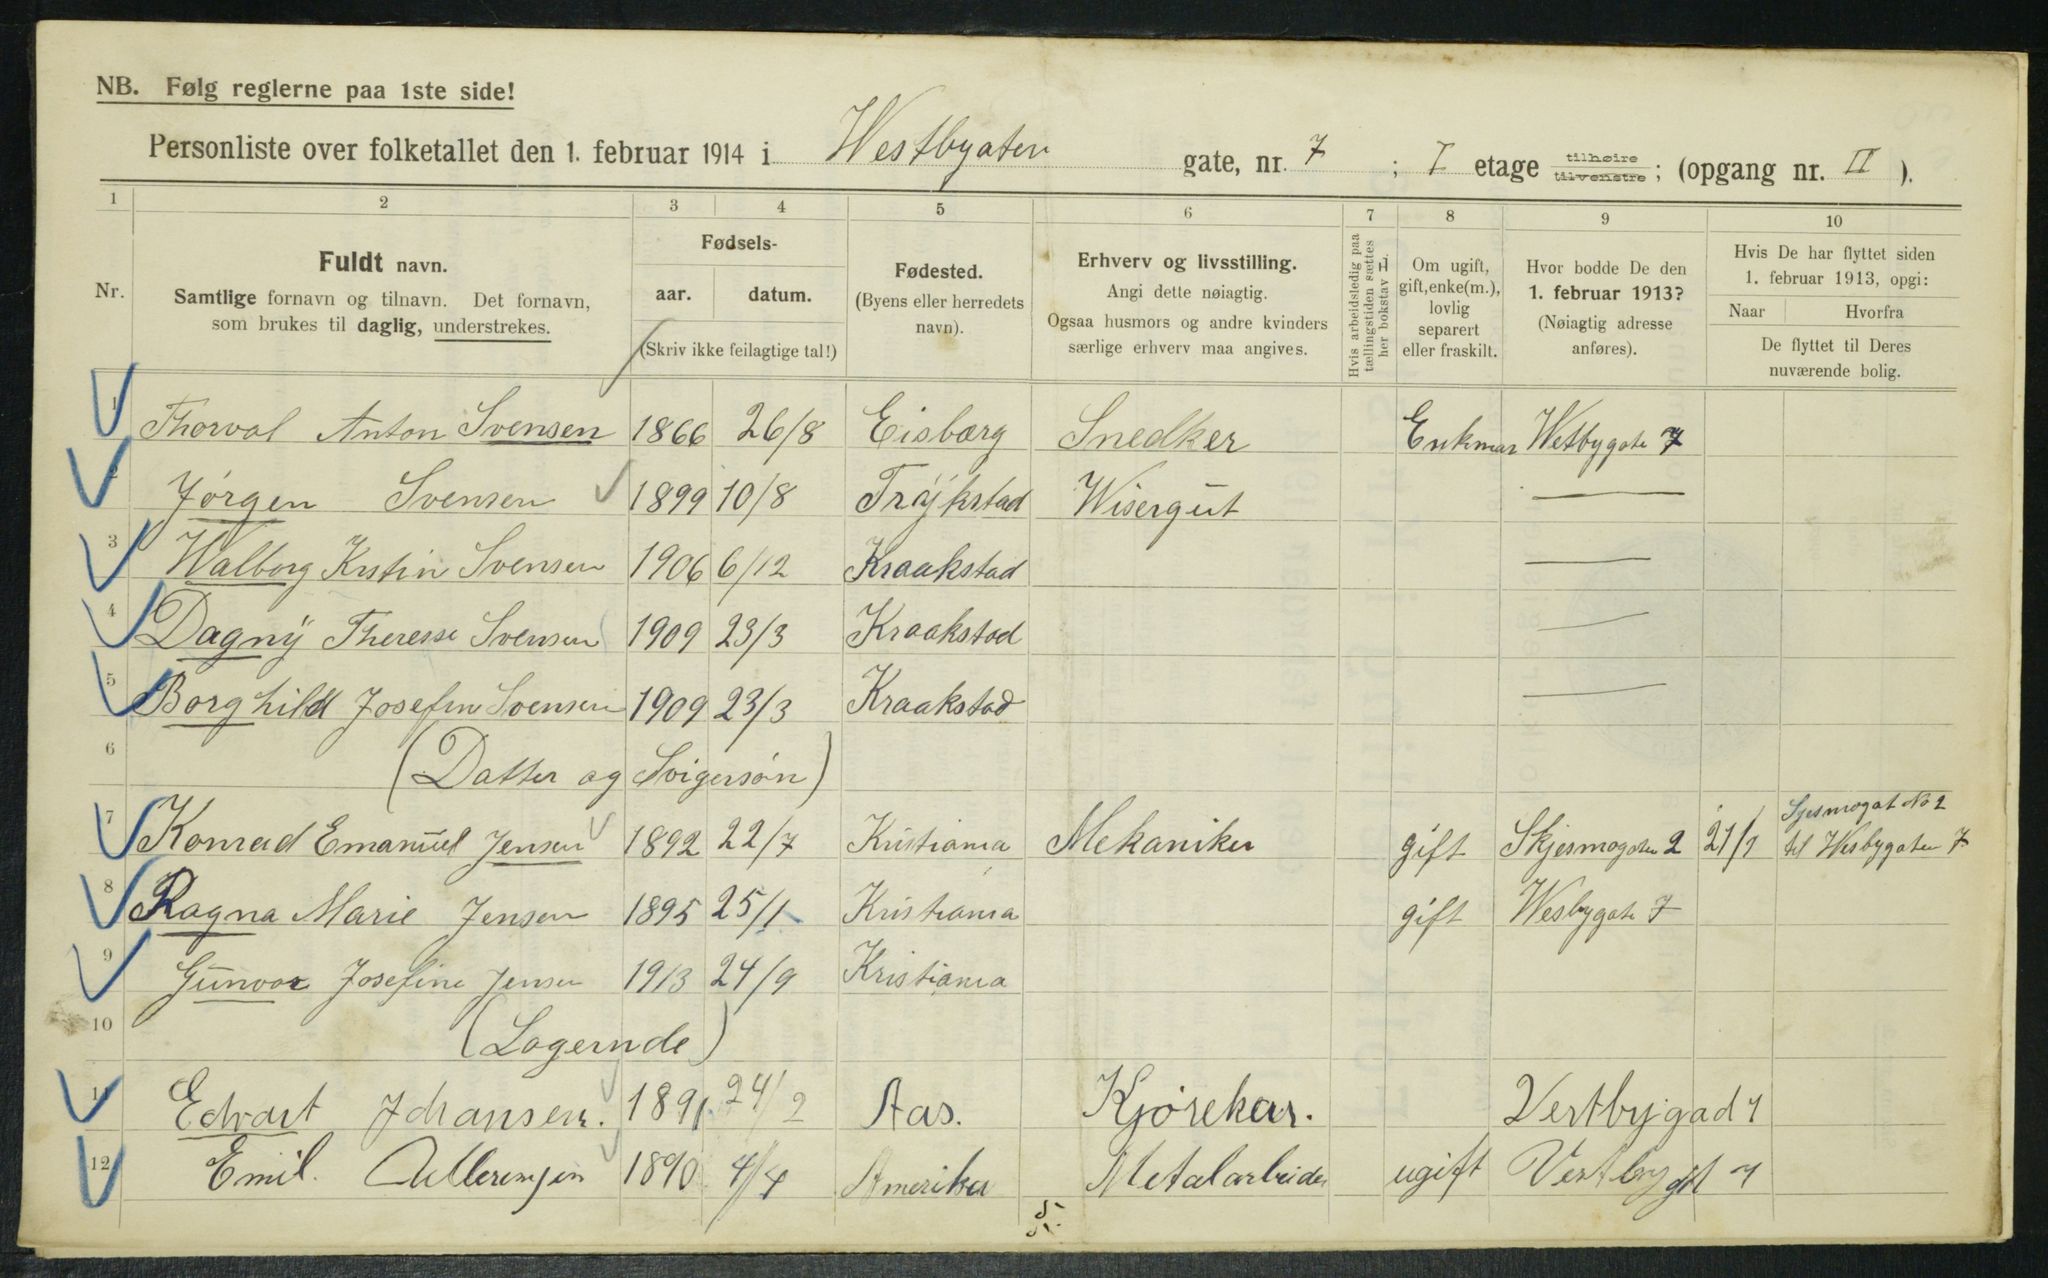 NB. Følg reglerne paa 1ste side!
Personliste over folketallet den 1. februar 1914 i Westbygaten gate, nr. 7 ; I etage tilhøire tilvenstre ; (opgang nr. II ).
1 2 3 4 5 6 7 8 9 10
Nr.
Fuldt navn.
Samtlige fornavn og tilnavn. Det fornavn,
som brukes til daglig, understrekes.
Fødsels-
aar. datum.
(Skriv ikke feilagtige tal!)
Fødested.
(Byens eller herredets
navn).
Erhverv og livsstilling.
Angi dette nøiagtig.
Ogsaa husmors og andre kvinders
særlige erhverv maa angives.
Hvis arbeidsledig paa
tællingstiden sættes
her bokstav H.
Om ugift,
gift, enke(m.),
lovlig
separert
eller fraskilt.
Hvor bodde De den
1. februar 1913?
(Nøiagtig adresse
anføres).
Hvis De har flyttet siden
1. februar 1913, opgi:
Naar Hvorfra
De flyttet til Deres
nuværende bolig.
1 Thorval Anton Svensen 1866 26/8 Eisbærg Snedker Enkman Wetbygate 7
2 Jørgen Svensen 1899 10/8 Trÿkstad Wisergut —
3 Walborg Kistin Svensen 1906 6/12 Kraakstad —
4 Dagnÿ Theresse Svensen 1909 23/3 Kraakstad —
5 Borghild Josefin Svensen 1909 23/3 Kraakstad —
6 (Datter og Svigersøn)
7 Konrad Emanuel Jensen 1892 22/7 Kristiania Mekaniker gift Skjesmogaten 2 21/1 Sjesmogat No 2
til Wesbygaten 7
8 Ragna Marie Jensen 1895 25/1 Kristiania gift Wesbygate 7
9 Gunvor Josefine Jensen 1913 24/9 Kristiania
10 (Logernde)
11 Edvart Johansen. 1891 24/2 Aas. Kjørekar. Vestbygad 7
12 Emil 1890 4/4 Amerika Metalarbeider ugift Vestby gt 7